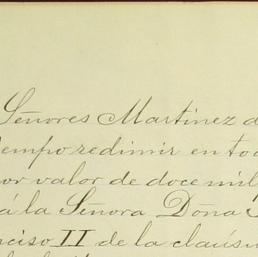 Señores Martinez d
iempo redimir en tod
por valor de doce mil
á la Señora Doña
nciso II de la claúsu